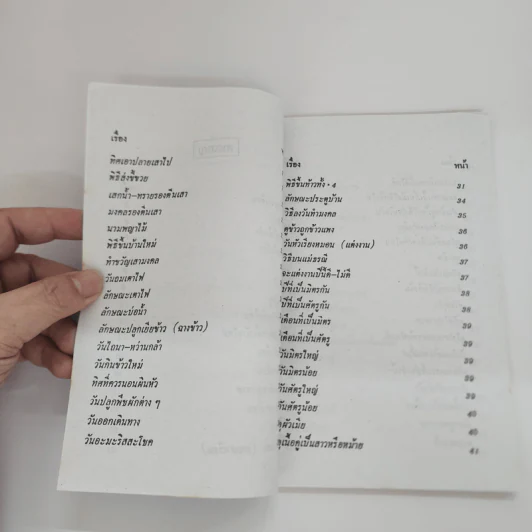 เรื่อง
ทิศเอาปลายเสาไป
พิธีส่งขี้ซวย
เสกน้ำ-ทรายรองตีนเสา
มงคลรองตีนเสา
นามพญาไม้
พิธีขึ้นบ้านใหม่
ทำขวัญเสามงคล
วันอมเตาไฟ
ลักษณะเตาไฟ
ลักษณะบ่อน้ำ
ลักษณะปลูกเยียข้าว (ฉางข้าว)
วันไถนา-หว่านกล้า
วันกินข้าวใหม่
ทิศที่ควรนอนผินหัว
วันปลูกพืชผักต่าง ๆ
วันออกเดินทาง
วันอะมะริสสะโชค
เรื่อง หน้า
พิธีขึ้นท้าวทั้ง ๔ 31
ลักษณะประตูบ้าน 34
วิธีลงวันทำมงคล 35
ดูข้าวถูกข้าวแพง 36
วันหัวเรียงหมอน (แต่งงาน) 36
วิธีบนแม่ธรณี 37
จะแต่งงานปีนี้ดี-ไม่ดี 37
ปีที่เป็นมิตรกัน 38
ปีที่เป็นศัตรูกัน 38
เดือนที่เป็นมิตร 39
เดือนที่เป็นศัตรู 39
วันมิตรใหญ่ 39
วันมิตรน้อย 39
วันศัตรูใหญ่ 39
วันศัตรูน้อย 40
ผัวเมีย 40
เนื้อคู่เป็นสาวหรือหม้าย 41